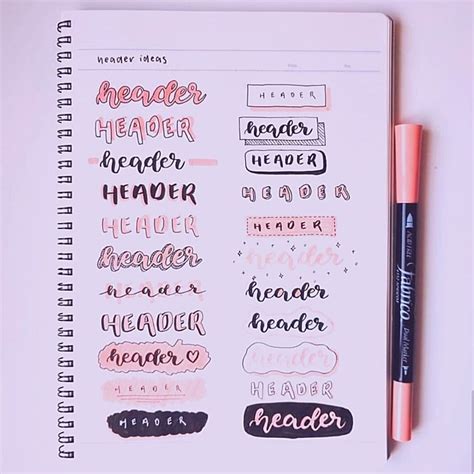 header ideas
header
HEADER
header
HEADER
HEADER
header
header
HEADER
header ♡
HEADER
header
HEADER
header
HEADER
HEADER
HEADER
header
header
header
header
HEADER
header
fabrico
Dual Marker